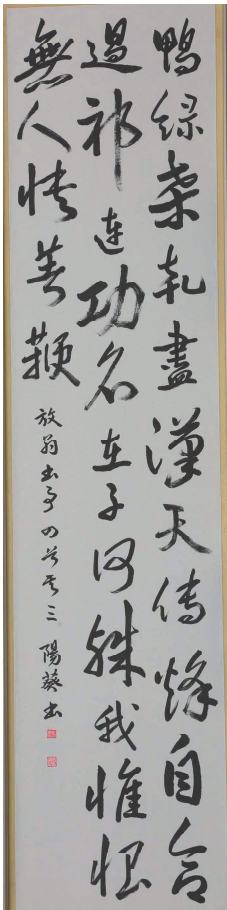 鴨綠桑乾盡漢天傳烽自合
過祁連功名在子何殊我惟恨
無人快著鞭
放翁書事四首其三 陽葵書